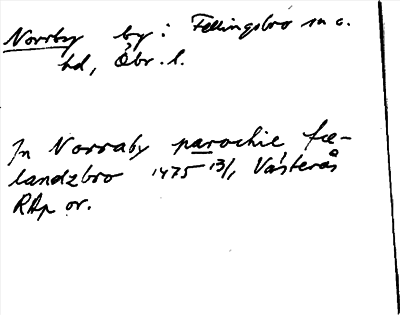 Norrby by i Fellingsbro sn o.
hd, Öbr. l.
In Norraby parochie fæ-
landzbro 1475 13/1, Västerås
RAp or.